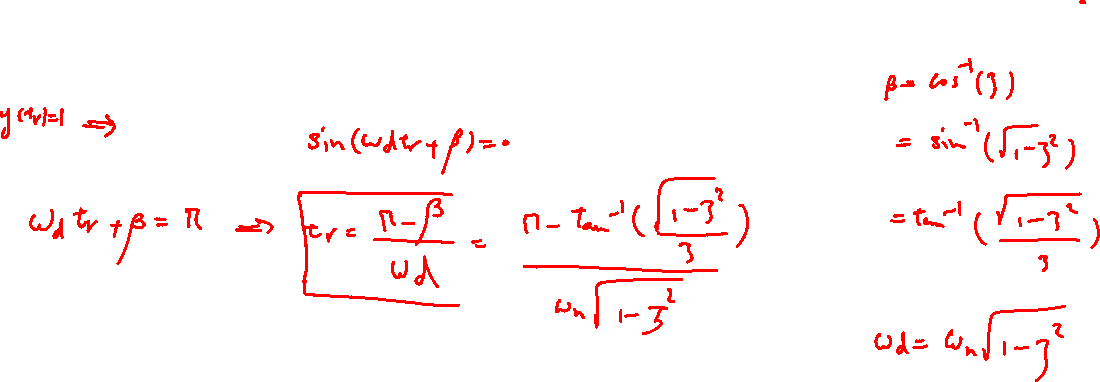 y(tr)=1 ⇒
sin(ωd tr + β) = 0
ωd tr + β = π ⇒ tr = (π - β)/ωd = (π - tan⁻¹(√(1-ζ²)/ζ))/(ωn√(1-ζ²))
β = cos⁻¹(ζ)
= sin⁻¹(√(1-ζ²))
= tan⁻¹(√(1-ζ²)/ζ)
ωd = ωn√(1-ζ²)